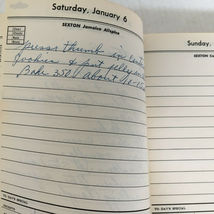 Saturday, January 6
SEXTON Jamaica Allspice
press thumb in
Cookies & put jelly
Bake 350 about 10-15
TO-DAY'S SPECIAL
Sunday,
SEXTON
TO-DAY'S SPECIAL